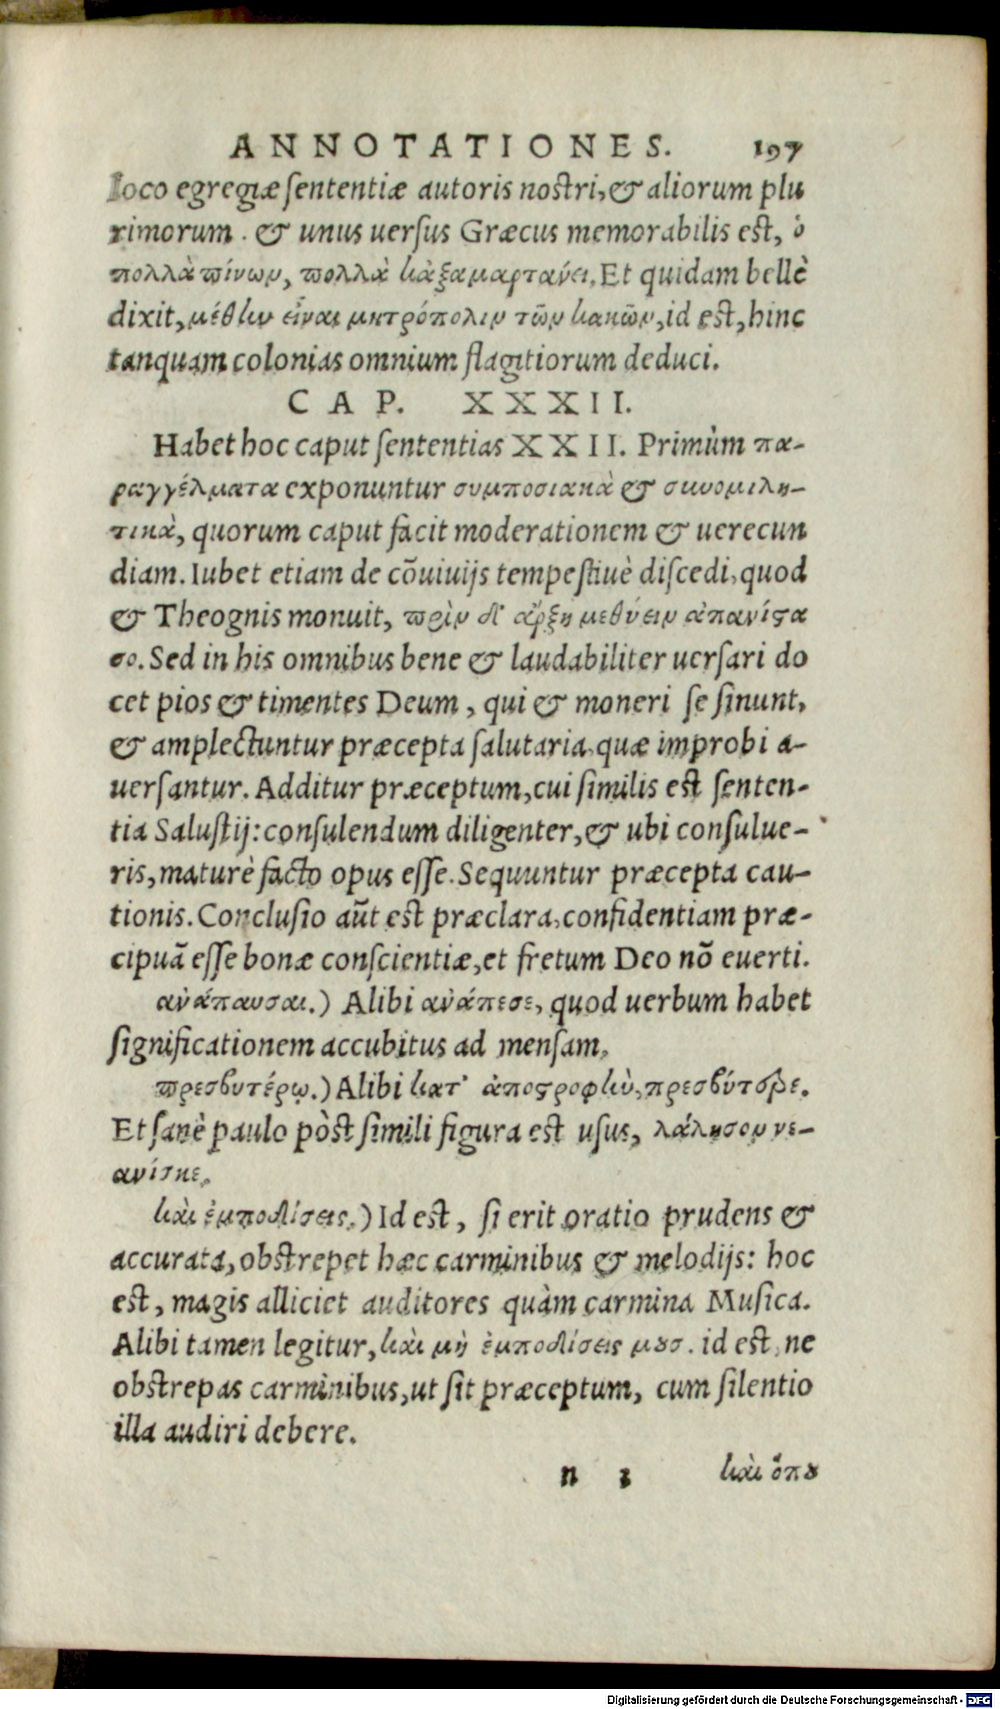 ANNOTATIONES. 197
loco egregiæ sententiæ autoris nostri, & aliorum plu
rimorum. & unus uersus Græcus memorabilis est, ὁ
πολλὰ πίνων, πολλὰ κἀξαμαρτάνει. Et quidam bellè
dixit, μέθην εἶναι μητρόπολιν τῶν κακῶν, id est, hinc
tanquam colonias omnium flagitiorum deduci.
CAP. XXXII.
Habet hoc caput sententias XXII. Primùm πα-
ραγγέλματα exponuntur συμποσιακὰ & συνομιλη-
τικὰ, quorum caput facit moderationem & uerecun
diam. Iubet etiam de cõuiuijs tempestiuè discedi, quod
& Theognis monuit, πρὶν δ' ἄρξῃ μεθύειν ἀπανίστα
σο. Sed in his omnibus bene & laudabiliter uersari do
cet pios & timentes Deum, qui & moneri se sinunt,
& amplectuntur præcepta salutaria, quæ improbi a-
uersantur. Additur præceptum, cui similis est senten-
tia Salustij: consulendum diligenter, & ubi consulue-
ris, maturè facto opus esse. Sequuntur præcepta cau-
tionis. Conclusio aũt est præclara, confidentiam præ-
cipuã esse bonæ conscientiæ, et fretum Deo nõ euerti.
ἀνάπαυσαι.) Alibi ἀνάπεσε, quod uerbum habet
significationem accubitus ad mensam.
πρεσβυτέρῳ.) Alibi κατ' ἀποστροφὴν, πρεσβύτερε.
Et sanè paulo pòst simili figura est usus, λάλησον νε-
ανίσκε.
καὶ ἐμποδίσεις.) Id est, si erit oratio prudens &
accurata, obstrepet hæc carminibus & melodijs: hoc
est, magis alliciet auditores quàm carmina Musica.
Alibi tamen legitur, καὶ μὴ ἐμποδίσεις μουσ. id est, ne
obstrepas carminibus, ut sit præceptum, cum silentio
illa audiri debere.
n 3 καὶ ὅπου
Digitalisierung gefördert durch die Deutsche Forschungsgemeinschaft - DFG